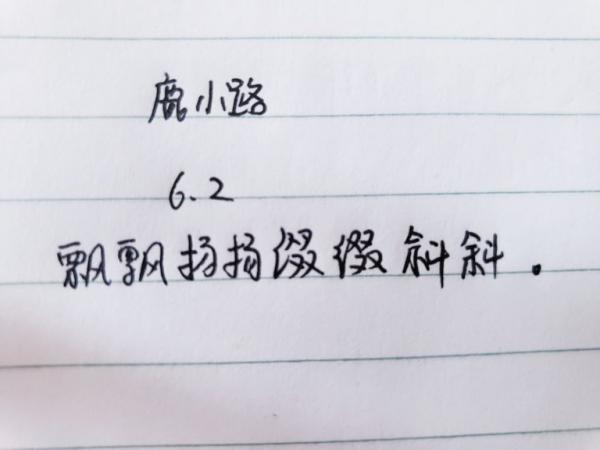 鹿小路
6.2
飘飘扬扬缀缀斜斜.